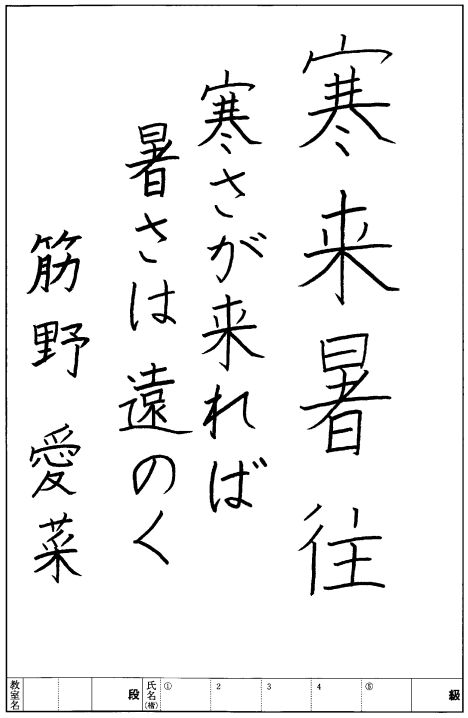 寒来暑往
寒さが来れば
暑さは遠のく
筋野 愛菜
教室名
段
氏名(横)
① 2 3 4 ⑤
級